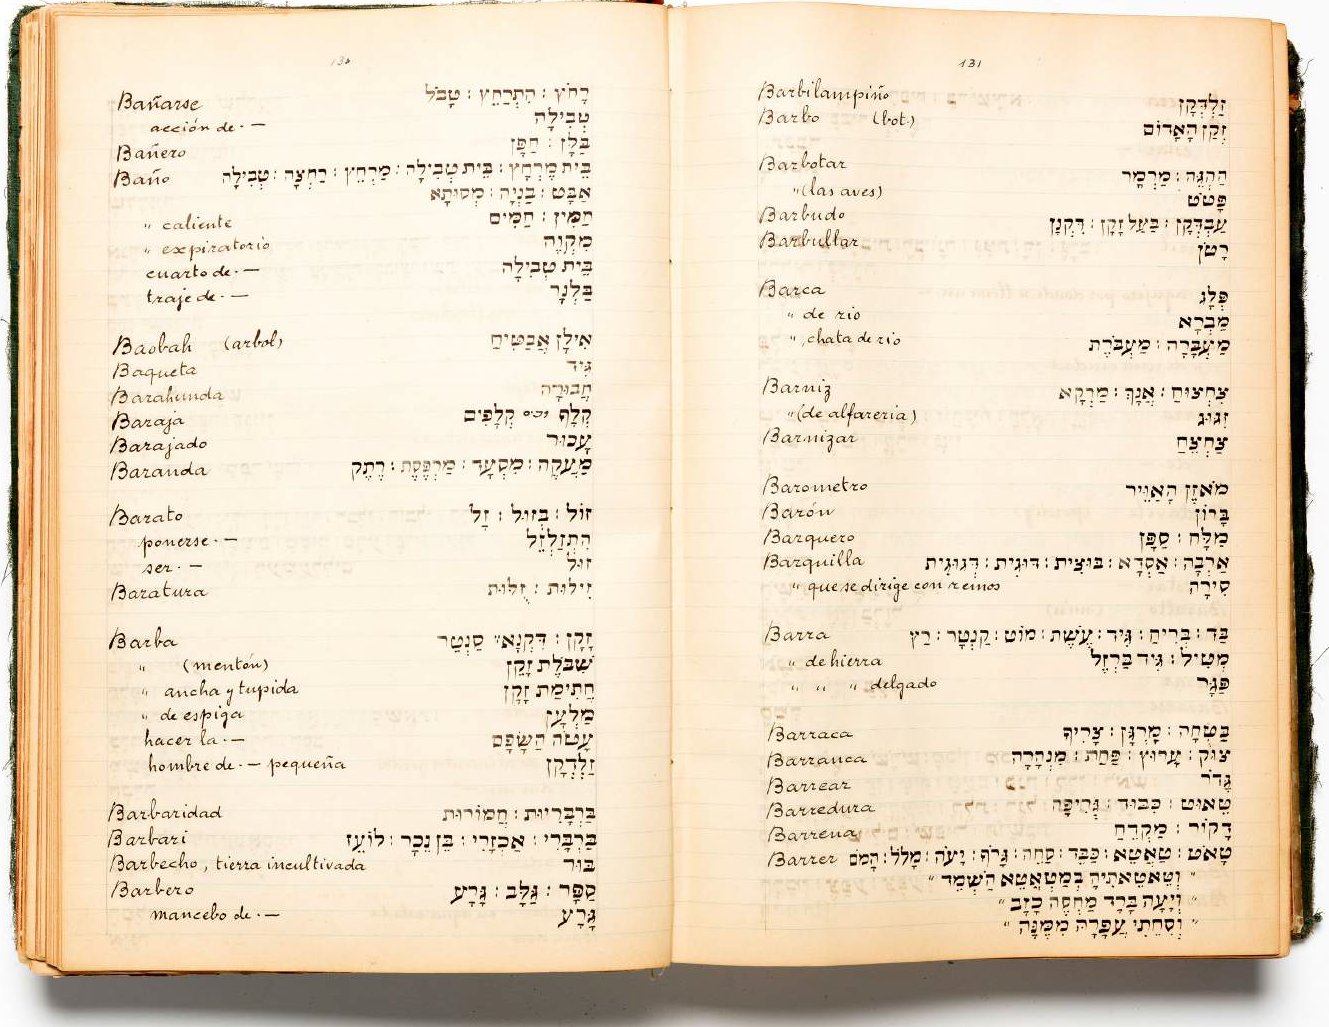 130
Bañarse רָחֹץ : הִתְרַחֵץ : טָבֹל
acción de · — טְבִילָה
Bañero בַּלָּן : חַפָּן
Baño בֵּית מֶרְחָץ : בֵּית טְבִילָה : מַרְחֵץ : רַחְצָה : טְבִילָה
אַבַּט : בַּנְיָה : מְסוּתָא
" caliente חַמִּין : חַמִּים
" expiratorio מִקְוֶה
cuarto de · — בֵּית טְבִילָה
traje de · — בַּלְנָר
Baobah (arbol) אִילָן אֲבַטִּיחַ
Baqueta גִּיד
Barahunda חֲבוּרָה
Baraja קְלָף וכ״ס קְלָפִים
Barajado עָכוּר
Baranda מַעֲקֶה : מִסְעָד : מַרְפֶּסֶת : רֶתֶק
Barato זוֹל : בְּזוּל : זָל
ponerse · — הִתְזַלְזֵל
ser · — זוּל
Baratura זִילוּת : זֻלּוּת
Barba זָקָן : דִּקְנָא״ סַנְטֵר
" (mentón) שִׁבֹּלֶת זָקָן
" ancha y tupida חֲתִימַת זָקָן
" de espiga מַלְעָן
hacer la · — עָטֹה הַשָּׂפָם
hombre de · — pequeña זַלְדְּקָן
Barbaridad בַּרְבָּרִיּוּת : חֲמוֹרוּת
Barbari בַּרְבָּרִי : אַכְזָרִי : בֶּן נֵכָר : לוֹעֵז
Barbecho, tierra incultivada בּוּר
Barbero סַפָּר : גַּלָּב : גָּרָע
mancebo de · — גָּרָע
131
Barbilampiño זַלְדְּקָן
Barbo (bot.) זְקַן הָאָדוֹם
Barbotar הַהְגֵּה : מַרְמֵר
" (las aves) פָּטֹט
Barbudo עַבְדְּקָן : בַּעַל זָקָן : דִּקְנָן
Barbullar רָטֹן
Barca פְּלָג
" de rio מַבְרָא
" , chata de rio מַעְבָּרָה : מַעְבֹּרֶת
Barniz צִחְצוּחַ : אֲנָךְ : מַרְקָא
" (de alfareria) זִגּוּג
Barnizar צַחְצֵחַ
Barometro מֹאזֶן הָאַוֵּיר
Barón בָּרוֹן
Barquero מַלָּח : סַפָּן
Barquilla אַרְבָּה : אַסְדָא : בּוּצִית : דּוּגִית : דְּגוּגִית
" que se dirige con remos סִירָה
Barra בַּד : בְּרִיחַ : גִּיד : עֶשֶׁת : מוֹט : קַנְטָר : רַץ
" de hierra מְטִיל : גִּיד בַּרְזֶל
" " " delgado פַּגָּר
Barraca בִּטְחָה : מָרְגָּן : צְרִיף
Barranca צוּק : עָרוּץ : פַּחַת : מִנְהָרָה
Barrear גָּדֹר
Barredura טֵאוּט : כִּבּוּד : גְּרִיפָה
Barrena דָּקוֹר : מַקְדֵּחַ
Barrer טָאֹט : טַאֲטֵא : כַּבֵּד : סָחֹה : גָּרֹף : יָעֹה : מָלֹל : הָמֹם
" וְטֵאטֵאתִיהָ בְּמַטְאֲטֵא הַשְׁמֵד "
" וְיָעָה בָרָד מַחְסֵה כָזָב "
" וְסִחֵתִי עֲפָרָהּ מִמֶּנָּה "